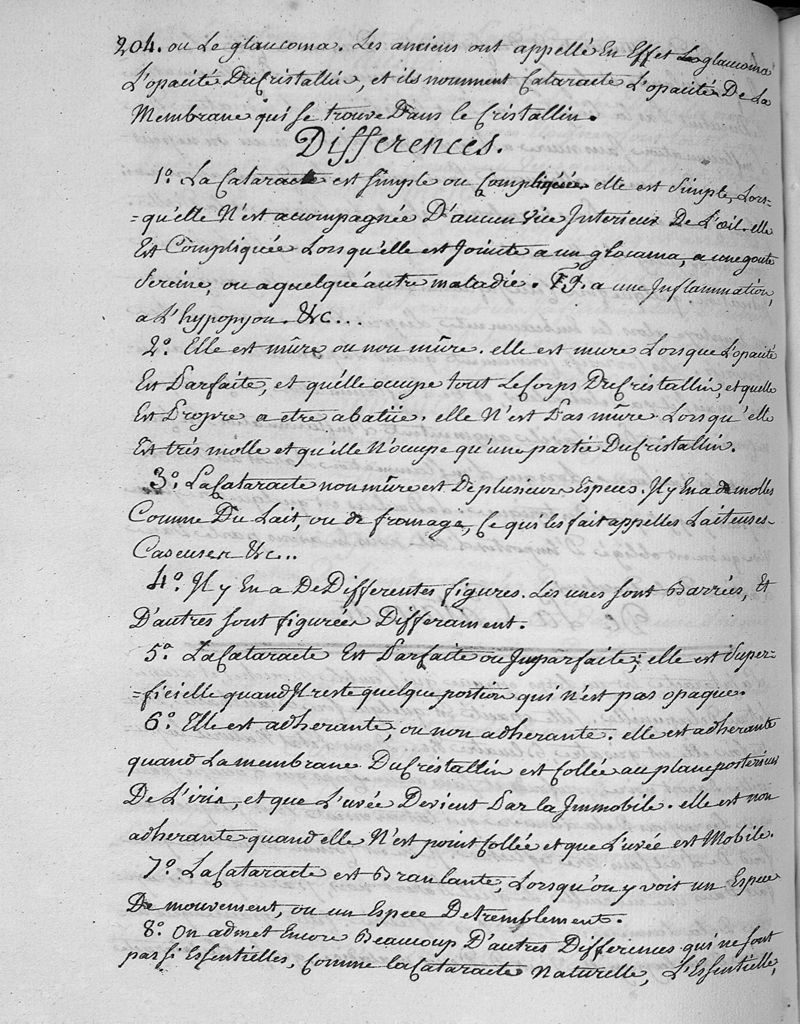 204. ou Le glaucoma. Les anciens ont appellé En Effet Le glaucoma
L'opacité Du Cristallin, et ils nomment Cataracte L'opacité De La
Membrane qui se trouve Dans le Cristallin.
Differences.
1º. La Cataracte est simple ou Compliquée. elle est simple, Lors-
=qu'elle N'est accompagnée D'aucun Vice Interieur De L'œil. elle
Est Compliquée Lorsqu'elle est Jointe a un glocama, a une goute
Sereine, ou a quelqué autre maladie. a une Inflammation,
a L'hypopyon. &c...
2º. Elle est mûre ou non mûre. elle est mure Lorsque L'opacité
Est Parfaite, et qu'élle occupe tout Le Corps Du Cristallin, et quelle
Est Propre a etre abatüe. elle N'est Pas mûre Lorsqu'elle
Est trés molle et qu'elle N'occupe qu'une partée Du Cristallin.
3º. La Cataracte non mûre est De plusieurs Especes. Il y En a de molles
Comme Du Lait, ou de fromage, Ce qui les fait appelles Laiteuses-
Caseuses &c..
4º. Il y En a De Differentes figures. Les unes sont Barrées, Et
D'autres sont figurées Differament.
5º. La Cataracte Est Parfaite ou Imparfaite; elle est Super-
=ficielle quand Il reste quelque portion qui n'est pas opaque.
6º. Elle est adherante, ou non adherante. elle est adherante
quand La membrane Du Cristallin est Collée au plan posterieur
De L'iris, et que L'uvée Devient Par la Immobile. elle est non
adherante quand elle N'est point Collée et que L'uvée est Mobile.
7º. La Cataracte est Branlante, Lorsqu'on y voit un Espece
De mouvement, ou un Espece De tremplement.
8º. On admet Encore Beaucoup D'autres Differences qui ne sont
pas si Essentielles, Comme la Cataracte Naturelle, L'Essentielle,